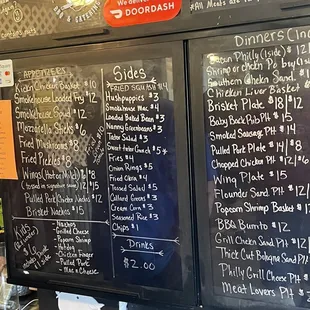 & CATERING
WE DELIVER WITH
DOORDASH
All Meats are
APPETIZERS
Kickin Chicken Basket $10
Smokehouse Loaded Fry $12
Smokehouse Squid $12
Mozzarella Sticks $6
Fried Mushrooms $8
Fried Pickles $8
Wings (Hot or Mild) 6/8
12/15
Pulled Pork Nachos $12
Brisket Nachos $15
Kids
$6
Nachos
Grilled Cheese
Popcorn Shrimp
Hotdog
Chicken Finger
Pulled Pork
Mac n Cheese
Sides
FRIED SQUASH $4
Hushpuppies $3
Smokehouse Mac $4
Loaded Baked Bean $3
Nanny Greenbeans $3
Tater Salad $3
Sweet Tater Crunch $5
Fries $4
Onion Rings $5
Fried Corn $4
Tossed Salad $5
Collard Greens $3
Cream Corn $3
Seasoned Rice $3
Chips $1
Drinks
$2.00
Dinners
Cajun Philly (1side) $12
Shrimp or Chicken Po Boy
Southern Chicken Sand
Chicken Liver Basket
Brisket Plate $18/12
Baby Back Rib Pl $15
Smoked Sausage Pl $14
Pulled Pork Plate $14/8
Chopped Chicken Pl $12/6
Wing Plate $15
Flounder Sand Pl $12
Popcorn Shrimp Basket $12
BBQ Burrito $12
Grill Chicken Sand Pl $12
Thick Cut Bologna Sand Pl
Philly Grill Cheese Pl
Meat Lovers Pl $